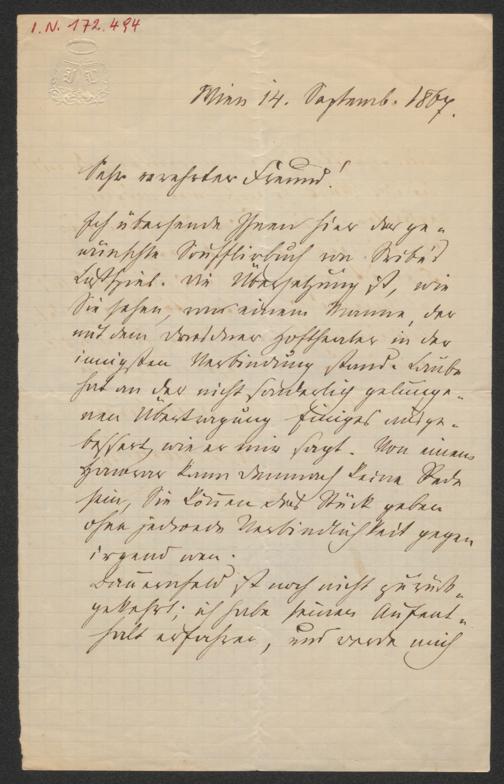 I.N. 172.494
Wien 14. Septemb. 1867.
Sehr verehrter Freund!
Ich übersende Ihnen hier das ge-
wünschte Soufflirbuch von Scribe's
Lustspiel. Die Übersetzung ist, wie
Sie sehen, von einem Manne, der
mit dem Dresdner Hoftheater in der
innigsten Verbindung stand. Laube
hat an der nicht sonderlich gelunge-
nen Übertragung Einiges ausge-
bessert, wie er mir sagt. Von einem
Honorar kann demnach keine Rede
sein, Sie können das Stück geben
ohne jedwede Verbindlichkeit gegen
irgend wen.
Bauernfeld ist noch nicht zurück-
gekehrt; ich habe seinen Aufent-
halt erfahren, und werde mich